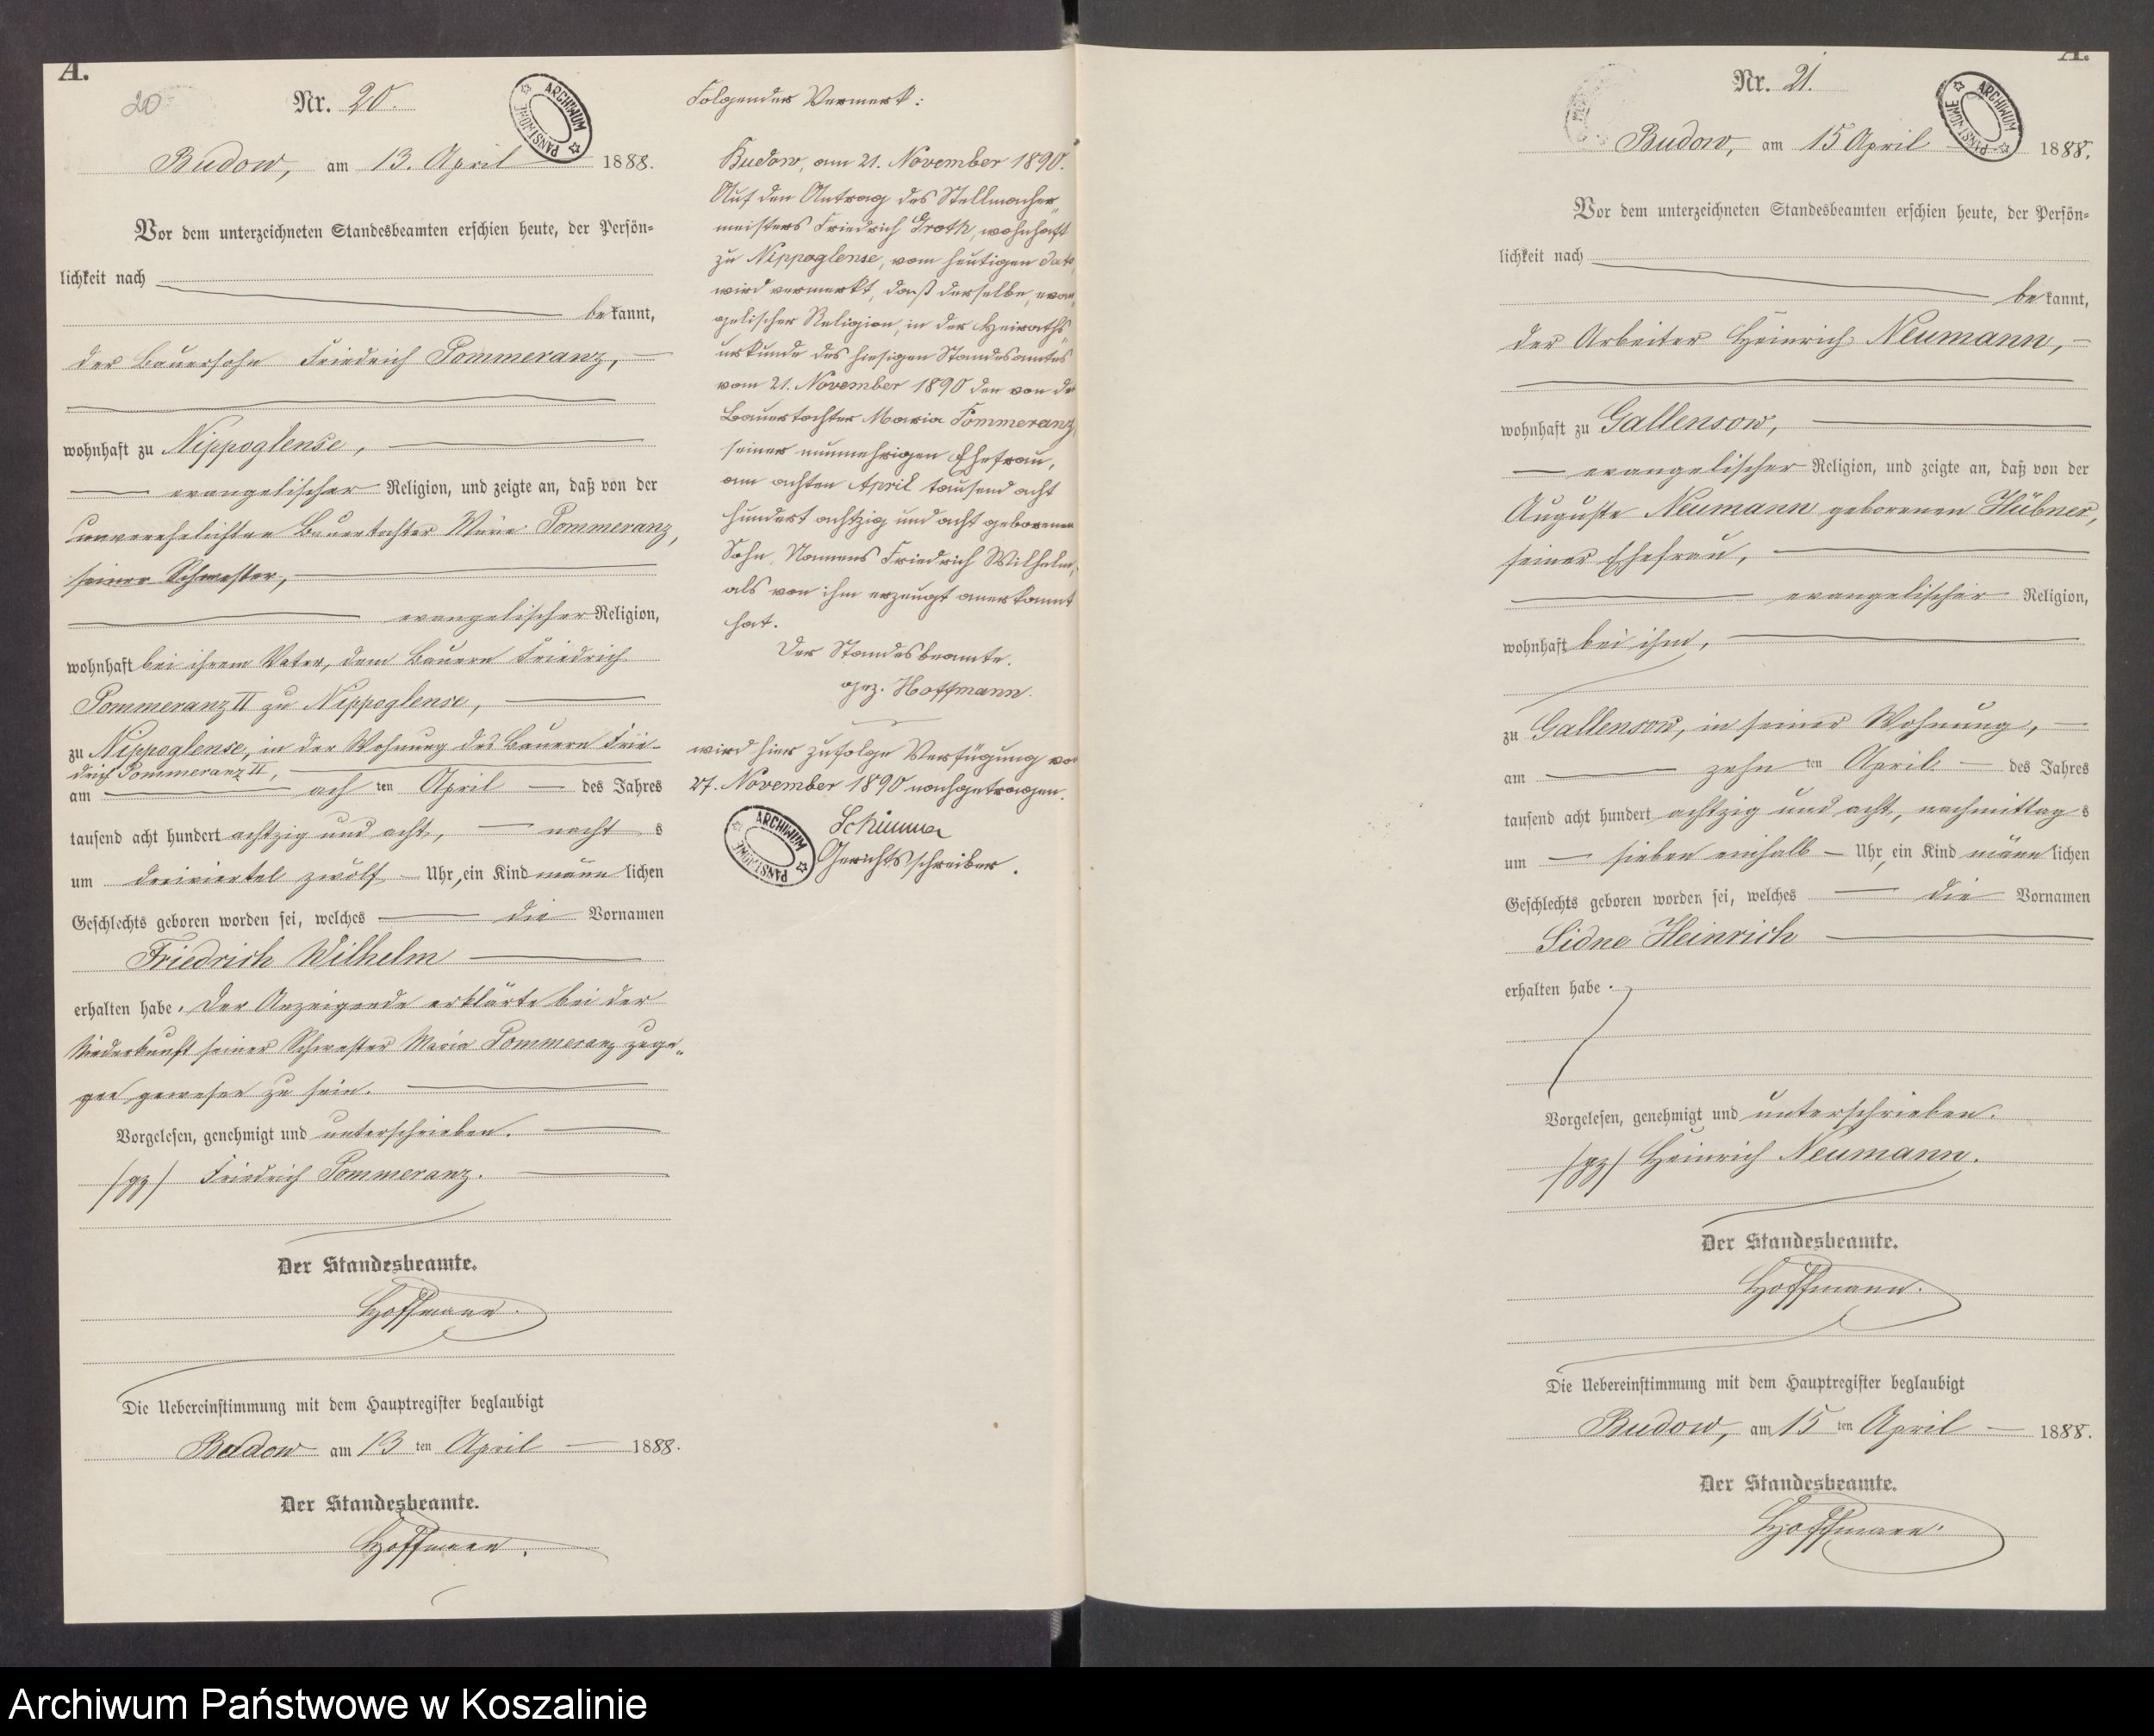 A.
20
Nr. 20.
ARCHIWUM PAŃSTWOWE
Budow, am 13. April 1888.
Vor dem unterzeichneten Standesbeamten erschien heute, der Persön-
lichkeit nach
bekannt,
der Bauersohn Friedrich Pommeranz,
wohnhaft zu Nippoglense,
evangelischer Religion, und zeigte an, daß von der
unverehelichten Bauertochter Marie Pommeranz,
seiner Schwester,
evangelischer Religion,
wohnhaft bei ihrem Vater, dem Bauern Friedrich
Pommeranz II zu Nippoglense,
zu Nippoglense, in der Wohnung des Bauern Frie-
drich Pommeranz II,
am achten April des Jahres
tausend acht hundert achtzig und acht, nachts
um dreiviertel zwölf Uhr, ein Kind männlichen
Geschlechts geboren worden sei, welches die Vornamen
Friedrich Wilhelm
erhalten habe. Der Anzeigende erklärte bei der
Niederkunft seiner Schwester Maria Pommeranz zuge-
gen gewesen zu sein.
Vorgelesen, genehmigt und unterschrieben.
/gz/ Friedrich Pommeranz.
Der Standesbeamte.
Hoffmann.
Die Uebereinstimmung mit dem Hauptregister beglaubigt
Budow am 13ten April 1888.
Der Standesbeamte.
Hoffmann.
Folgender Vermerk:
Budow, am 21. November 1890.
Auf den Antrag des Stellmacher-
meisters Friedrich Groth, wohnhaft
zu Nippoglense, vom heutigen Dato,
wird vermerkt, daß derselbe, evan-
gelischer Religion, in der Heiraths-
urkunde des hiesigen Standesamtes
vom 21. November 1890 den von der
Bauertochter Maria Pommeranz,
seiner nunmehrigen Ehefrau,
am achten April tausend acht
hundert achtzig und acht geborenen
Sohn, Namens Friedrich Wilhelm,
als von ihm erzeugt anerkannt
hat.
Der Standesbeamte.
gez. Hoffmann.
wird hier zufolge Verfügung vom
27. November 1890 nachgetragen.
Gerichtsschreiber.
ARCHIWUM PAŃSTWOWE
A.
Nr. 21.
ARCHIWUM PAŃSTWOWE
Budow, am 15 April 1888.
Vor dem unterzeichneten Standesbeamten erschien heute, der Persön-
lichkeit nach
bekannt,
der Arbeiter Heinrich Neumann,
wohnhaft zu Gallensow,
evangelischer Religion, und zeigte an, daß von der
Auguste Neumann geborenen Hübner,
seiner Ehefrau,
evangelischer Religion,
wohnhaft bei ihm,
zu Gallensow, in seiner Wohnung,
am zehnten April des Jahres
tausend acht hundert achtzig und acht, nachmittags
um sieben einhalb Uhr, ein Kind männlichen
Geschlechts geboren worden sei, welches die Vornamen
Heinrich
erhalten habe.
Vorgelesen, genehmigt und unterschrieben.
/gz/ Heinrich Neumann.
Der Standesbeamte.
Hoffmann.
Die Uebereinstimmung mit dem Hauptregister beglaubigt
Budow, am 15ten April 1888.
Der Standesbeamte.
Hoffmann.
Archiwum Państwowe w Koszalinie